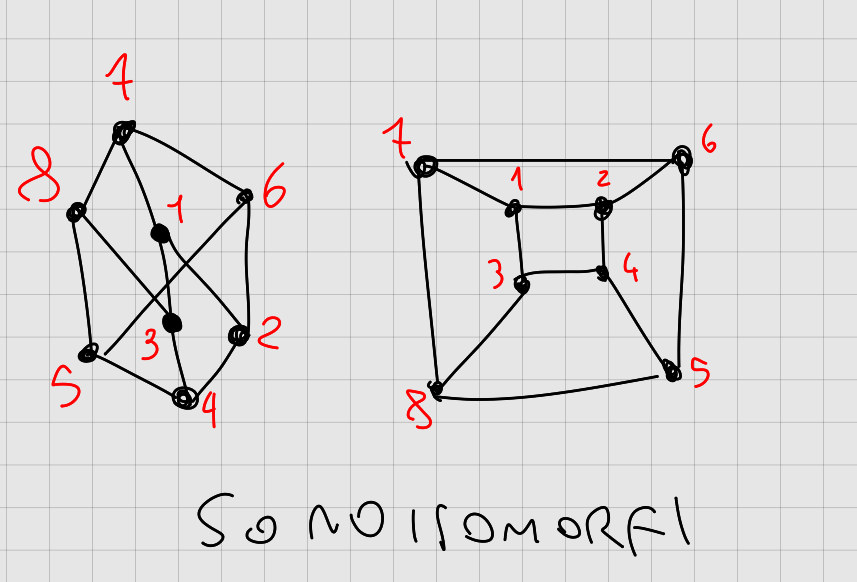 7
8
1
6
3
2
5
4
7
6
1
2
3
4
5
8
SONO ISOMORFI